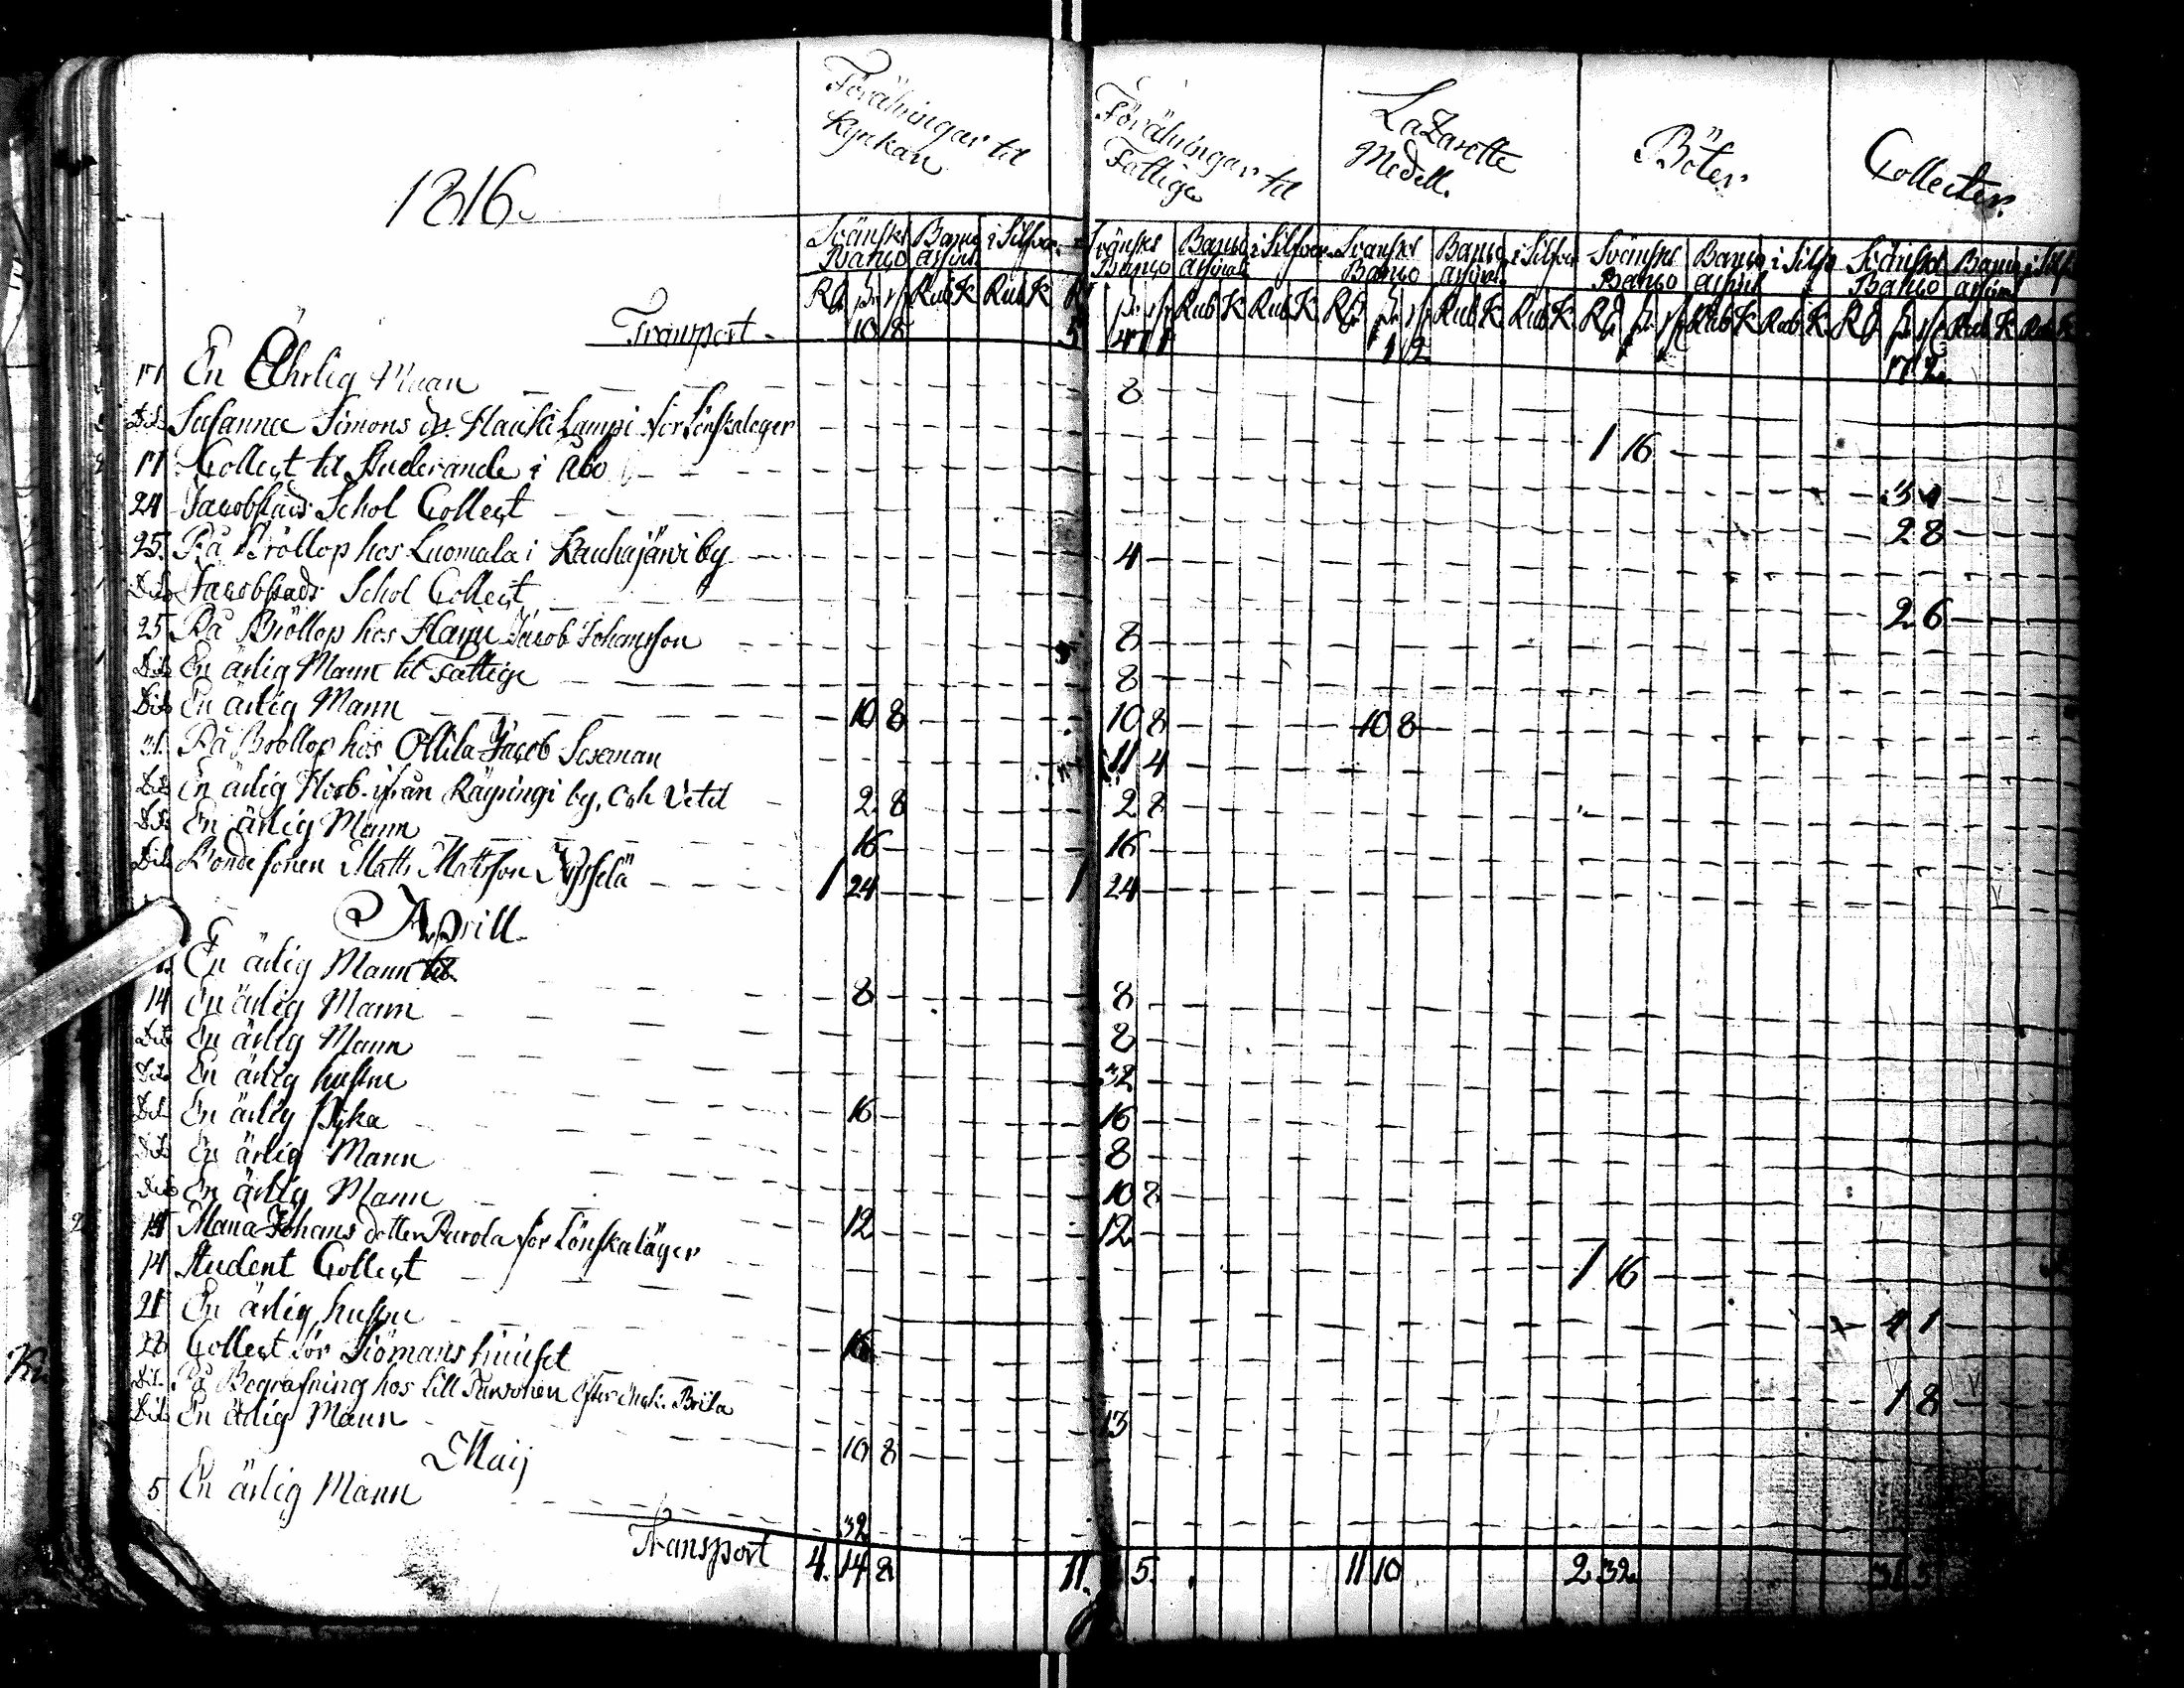 1816.
Föräringar til Kyrkan
Föräringar til Fattige
Lazarette Medell.
Böter.
Collecter.
Svänskt Banco Banco assign. i Silfver Svänskt Banco Banco assignat. i Silfver Svänskt Banco Banco assignat. i Silfver Svänskt Banco Banco assign. i Silfv Svänskt Banco Banco assign i Silf
Rub K Rub K Rub K Rub K Rub K Rub K Rub K Rub K Rub K Rub K
Transport 10 8 5 47 1 1 2 17 2
17 En Ährlig Maan 8
Dito Susanna Simons dr. Hauki Lampi för Lönskaläger 1 16
17 Collect til Studerande i Åbo 3 4
24 Jacobstads Schol Collect 2 8
25. På Bröllop hos Luomala i Kauhajärvi by 4
Dito Jacobstads Schol Collect 2 6
25 På Bröllop hos Harju Jacob Johansson 8
Dito En ärlig Mann til Fattige 8
Dito En ärlig Mann 10 8 10 8 10 8
31. På Bröllop hos Ollila Jacob 11 4
Dito En ärlig ifrån Räyringi by, och Vetil 2 8 2 8
Dito En ärlig Mann 16 16
Dito Bondesonen Matts Mattsson 1 24 1 24
Aprill
En ärlig Mann 8 8
14 En ärlig Mann 8
Dito En ärlig Mann 32
Dito En ärlig hustru 16 16
Dito En ärlig Pika 8
Dito En ärlig Mann 10 8
Dito En ärlig Mann 12 12
14 Maria Johans dotter Purola för Lönskaläger 1 16
14 Student Collect 4 1
21 En ärlig hustru 16
28 Collect för Siömans huuset 1 8
Dit. På Begrafning hos Lill 13
Dito En ärlig Mann 10 8
Maij
5 En ärlig Mann 32
Transport 4. 14 8 11. 5. 11 10 2 32. 31 5